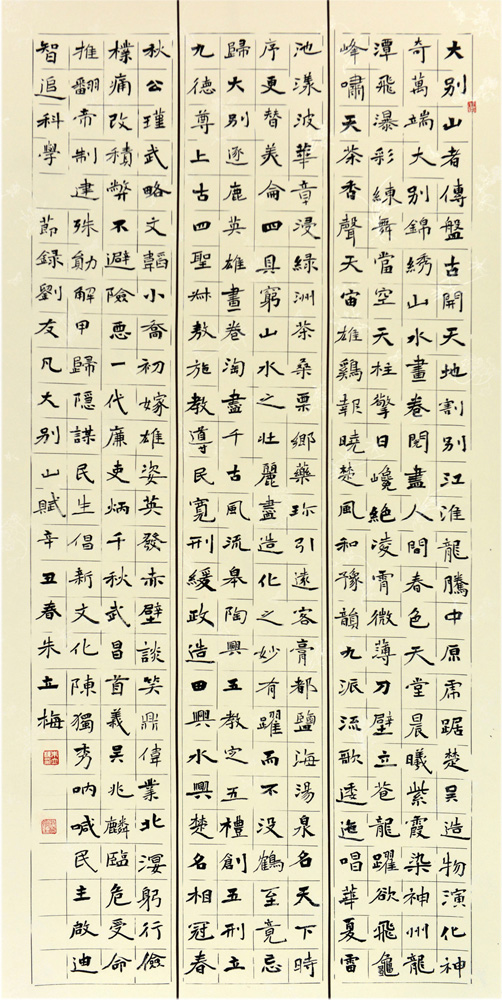 大别山者傳盤古開天地割别江淮龍騰中原虎踞楚吴造物演化神
奇萬端大别錦綉山水畫卷閱盡人間春色天堂晨曦紫霞染神州龍
潭飛瀑彩練舞當空天柱擎日巉絶凌霄微薄刀壁立蒼龍躍欲飛龜
峰嘯天茶香聲天宙雄鷄報曉楚風和豫韻九派流歌逶迤唱華夏雷
池漾波華音浸緑洲茶桑栗鄉藥珎引遠客膏都鹽海湯泉名天下時
序更替美侖四具窮山水之壯麗盡造化之妙有躍而不没鶴至竟忘
歸大别逐鹿英雄畫卷淘盡千古風流皋陶興五教定五禮創五刑立
九德尊上古四聖叔敖施教導民寬刑緩政造田興水興楚名相冠春
秋公瑾武略文韜小喬初嫁雄姿英發赤壁談笑鼎偉業北溟躬行儉
樸痛改積弊不避險惡一代廉吏炳千秋武昌首義吴兆麟臨危受命
推翻帝制建殊勛解甲歸隱謀民生倡新文化陳獨秀呐喊民主啟迪
智追科學 節録劉友凡大别山賦辛丑春朱立梅